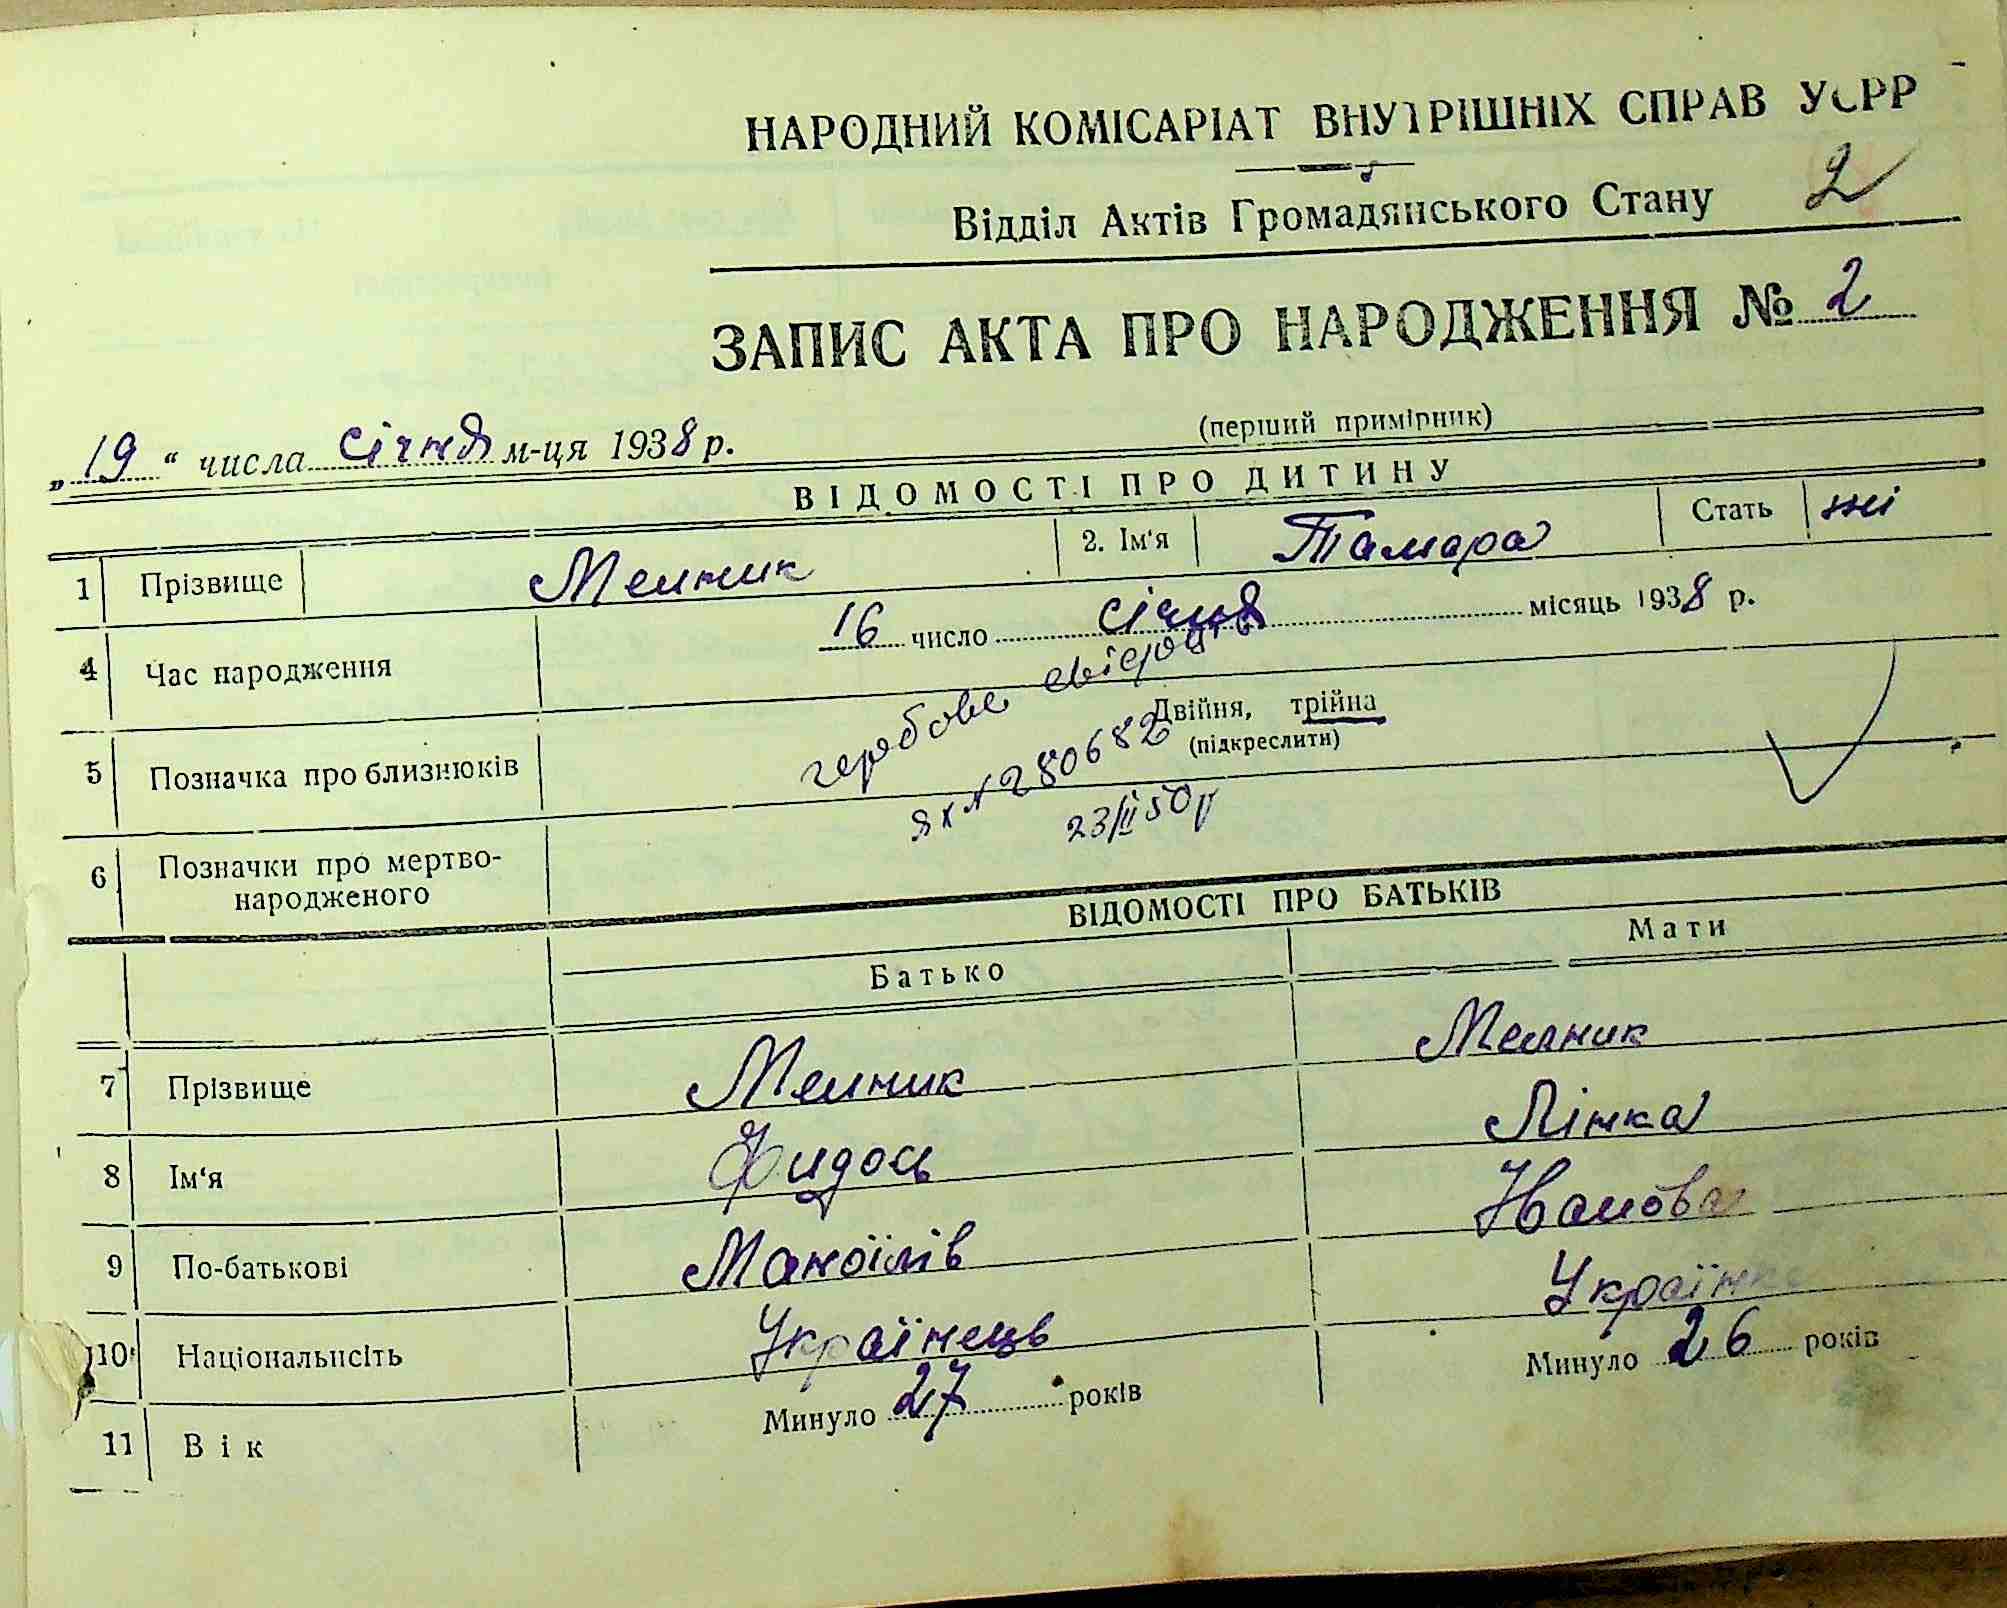 НАРОДНИЙ КОМІСАРІАТ ВНУТРІШНІХ СПРАВ УСРР
Відділ Актів Громадянського Стану 2
ЗАПИС АКТА ПРО НАРОДЖЕННЯ № 2
(перший примірник)
„19“ числа січня м-ця 1938 р.
ВІДОМОСТІ ПРО ДИТИНУ
1 Прізвище Мелник 2. Ім'я Тамара Стать жі
4 Час народження 16 число січня місяць 1938 р.
5 Позначка про близнюків Двійня, трійна
(підкреслити)
гербове свідоцтв
ЯХ № 280682
23/II 50р
6 Позначки про мертво-
народженого
ВІДОМОСТІ ПРО БАТЬКІВ
Батько Мати
7 Прізвище Мелник Мелник
8 Ім'я Фидось Лінка
9 По-батькові Манойлів
10 Національність Українець Українка
11 Вік Минуло 27 років Минуло 26 років